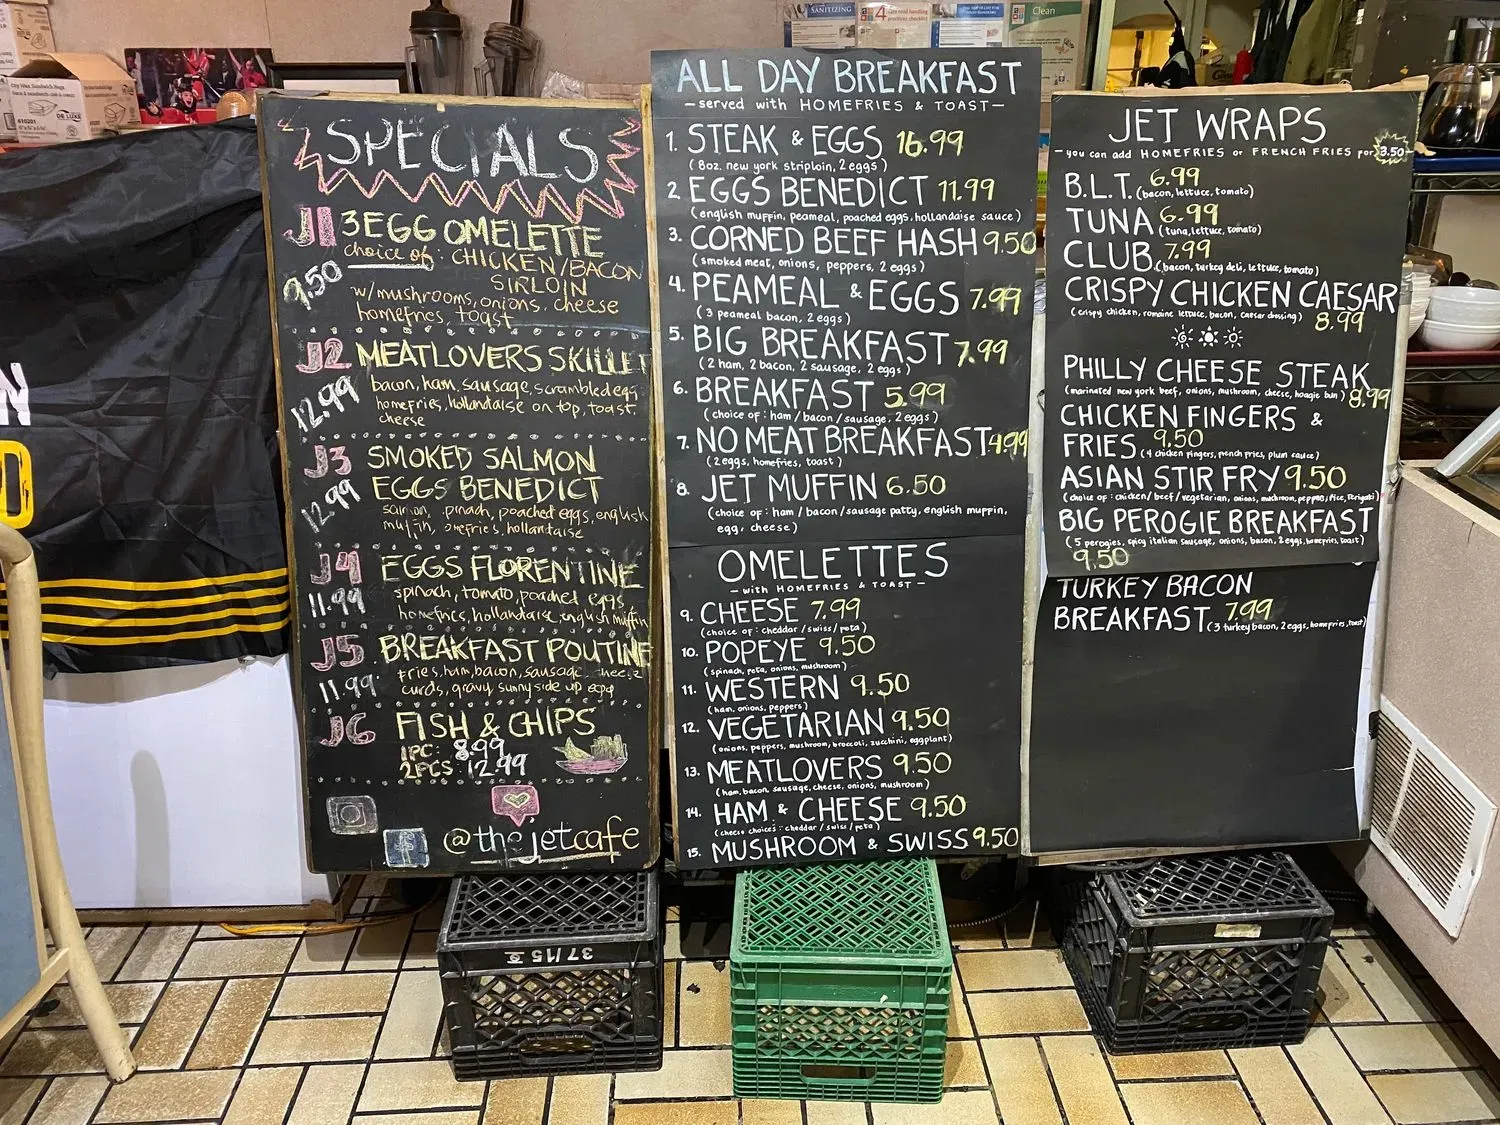 SPECIALS
J1 3 EGG OMELETTE
9.50
choice of: CHICKEN/BACON
SIRLOIN
w/mushrooms, onions, cheese
homefries, toast
J2 MEATLOVERS SKILLET
12.99
bacon, ham, sausage, scrambled egg
homefries, hollandaise on top, toast
cheese
J3 SMOKED SALMON
EGGS BENEDICT
12.99
poached eggs, english
hollandaise
J4 EGGS FLORENTINE
11.99
spinach, tomato, poached eggs
homefries, hollandaise, english muffin
J5 BREAKFAST POUTINE
11.99
fries, ham, bacon, sausage,
curds, gravy, sunny side up egg
J6 FISH & CHIPS
1PC: 8.99
2PCS: 12.99
@thejetcafe
ALL DAY BREAKFAST
- served with HOMEFRIES & TOAST -
1. STEAK & EGGS 16.99
(8oz. new york striploin, 2 eggs)
2. EGGS BENEDICT 11.99
(english muffin, peameal, poached eggs, hollandaise sauce)
3. CORNED BEEF HASH 9.50
(smoked meat, onions, peppers, 2 eggs)
4. PEAMEAL & EGGS 7.99
(3 peameal bacon, 2 eggs)
5. BIG BREAKFAST 7.99
(2 ham, 2 bacon, 2 sausage, 2 eggs)
6. BREAKFAST 5.99
(choice of: ham/bacon/sausage, 2 eggs)
7. NO MEAT BREAKFAST 4.99
(2 eggs, homefries, toast)
8. JET MUFFIN 6.50
(choice of: ham/bacon/sausage patty, english muffin,
egg, cheese)
OMELETTES
- with HOMEFRIES & TOAST -
9. CHEESE 7.99
(choice of: cheddar/swiss/feta)
10. POPEYE 9.50
(spinach, feta, onions, mushroom)
11. WESTERN 9.50
(ham, onions, peppers)
12. VEGETARIAN 9.50
(onions, peppers, mushroom, broccoli, zucchini, eggplant)
13. MEATLOVERS 9.50
(ham, bacon, sausage, cheese, onions, mushroom)
14. HAM & CHEESE 9.50
(cheese choices: cheddar/swiss/feta)
15. MUSHROOM & SWISS 9.50
JET WRAPS
- you can add HOMEFRIES or FRENCH FRIES for 3.50
B.L.T. 6.99
(bacon, lettuce, tomato)
TUNA 6.99
(tuna, lettuce, tomato)
CLUB 7.99
(bacon, turkey deli, lettuce, tomato)
CRISPY CHICKEN CAESAR
(crispy chicken, romaine lettuce, bacon, caesar dressing) 8.99
PHILLY CHEESE STEAK
(marinated new york beef, onions, mushroom, cheese, hoagie bun) 8.99
CHICKEN FINGERS &
FRIES 9.50
(4 chicken fingers, french fries, plum sauce)
ASIAN STIR FRY 9.50
(choice of: chicken/beef/vegetarian, onions, mushroom, peppers, rice, teriyaki)
BIG PEROGIE BREAKFAST
(5 perogies, spicy italian sausage, onions, bacon, 2 eggs, homefries, toast)
9.50
TURKEY BACON
BREAKFAST 7.99
(3 turkey bacon, 2 eggs, homefries, toast)
SANITIZING
4
Clean
610201
DE LUXE
N
37/15